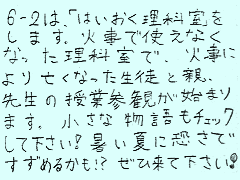 6-2は、「はいおく理科室を
します。火事で使えなく
なった理科室で、火事に
より亡くなった生徒と親、
先生の授業参観が始まり
ます。小さな物語もチェック
して下さい!暑い夏に恐さで
すずめるかも!?ぜひ来て下さい!